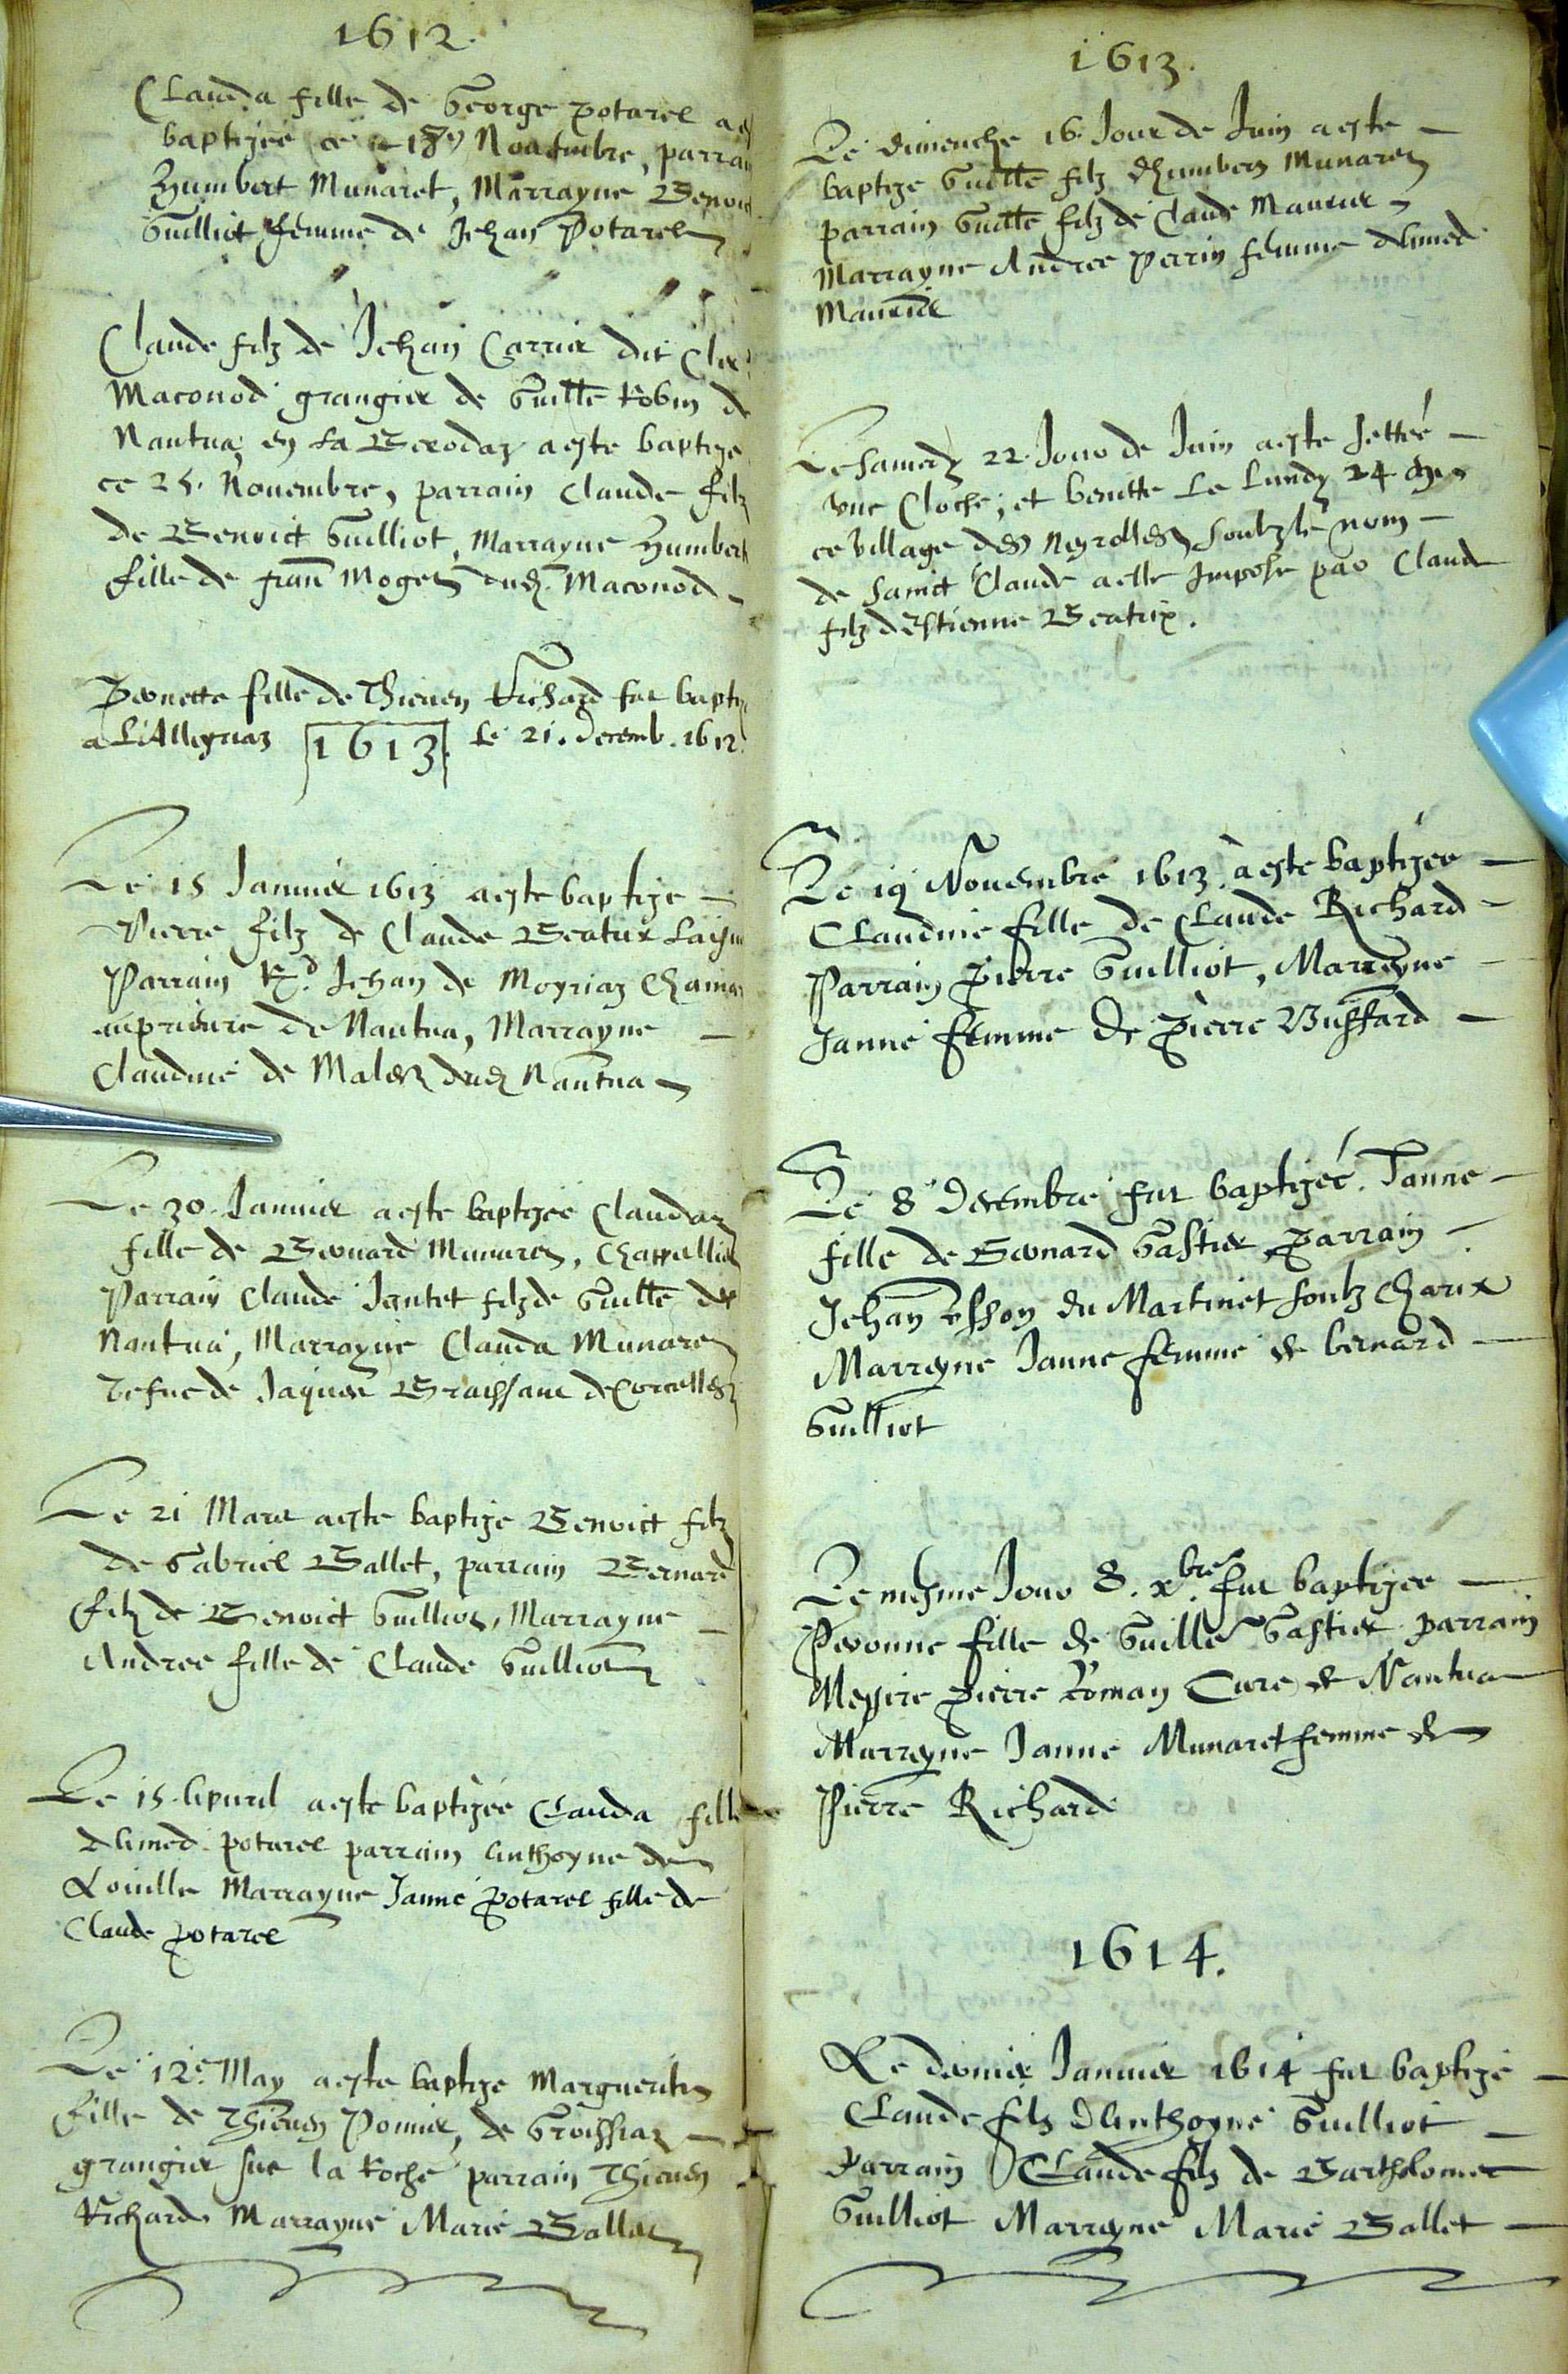 1612.
Clauda fille de George potarel a
baptizée ce 18 Novembre, parrain
Humbert Munaret, Marrayne Benoi
Guilliot femme de Jehan Potarel
Claude filz de Jehan Carrier dit
Maconod grangier de Guille Robin de
Nantua, en la aeste baptize
ce 25. Nouembre, parrain Claude filz
de Benoict Guilliot, Marrayne Humbert
fille de Moget dud. Maconod
Pernette fille de Thieuen Richard fut bapti
a L'Alleyriaz 1613 le 21. Decemb. 1612.
Le 15 Januier 1613 aeste baptize
Pierre filz de Claude Beatrix
Parrain Rd. Jehan de Moyriaz
prieure de Nantua, Marrayne
Claudine de dud. Nantua
Le 30. Januier aeste baptizée Claudaz
fille de Bernard Munaret, Chappellie
Parrain Claude Jantet filz de Guille de
Nantua, Marrayne Clauda Munaret
Jaques
Le 21 Mars aeste baptize Benoict filz
de Gabriel Ballet, parrain Bernard
filz de Benoict Guilliot, Marrayne
Andree fille de Claude Guilliot
Le 15. Apuril aeste baptizée Clauda fille
dAmed. potarel parrain Anthoyne de
Louille Marrayne Janne potarel fille de
Claude potarel
Le 12e May aeste baptize Marguerite
fille de Thieuen de Groissiaz
grangier sur la Roche parrain Thieuen
Richard Marrayne Marie Ballet
1613.
Le dimenche 16. Jour de Juin aeste
baptize Guille filz dHumbert Munaret
parrain Guille filz de Claude
Marrayne Andree Perrin femme dAmed
Le Samedy 22. Jour de Juin aeste Jettée
une Cloche, et benitte Le Lundy 24
ce village des Neyrolles Soubz le nom
de Sainct Claude a elle Impose par Claude
filz dEstienne Beatrix.
Le 19 Nouembre 1613. aeste baptizée
Claudine fille de Claude Richard
Parrain Pierre Guilliot, Marreyne
Janne femme de Pierre Buffard
Le 8 Decembre fut baptizée. Janne
fille de Bernard Gastier Parrain
Jehan du Martinet soubz Charix
Marreyne Janne femme de bernard
Guilliot
Le mesme Jour 8. xbre. fut baptizée
Peronne fille de Guille Gastier parrain
Messire Pierre Roman Cure de Nantua
Marreyne Janne Munaret femme de
Pierre Richard
1614.
Le dernier Januier 1614 fut baptizé
Claude filz dAnthoyne Guilliot
Parrain Claude filz de Bartholomee
Guilliot Marreyne Marie Ballet